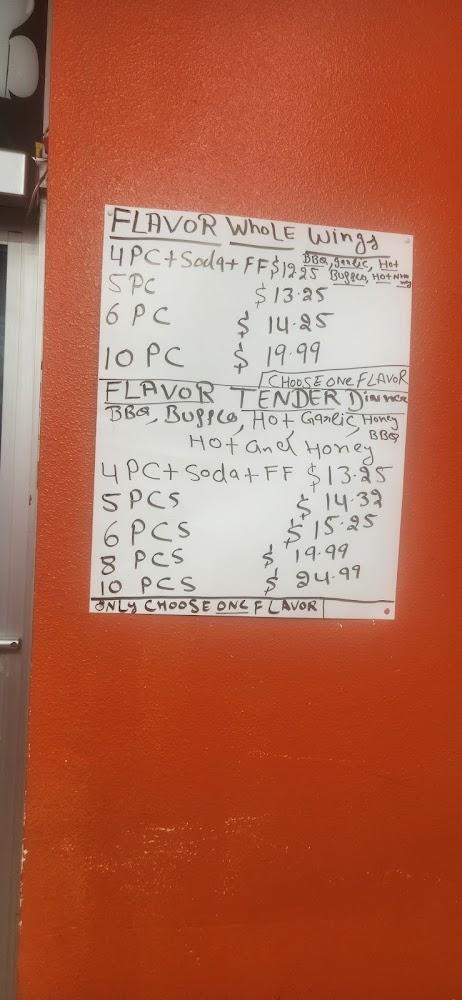 FLAVOR WHOLE Wings
4 PC + Soda + FF $12.25 BBQ, garlic, Hot
Buffco, Hot N Honey
5 PC $13.25
6 PC $ 14.25
10 PC $ 19.99
CHOOSE ONE FLAVOR
FLAVOR TENDER Dinner
BBQ, Buffco, Hot Garlic, Honey BBQ
Hot and Honey
4 PC + Soda + FF $13.25
5 PCS $ 14.32
6 PCS $15.25
8 PCS $ 19.99
10 PCS $ 24.99
ONLY CHOOSE ONE FLAVOR